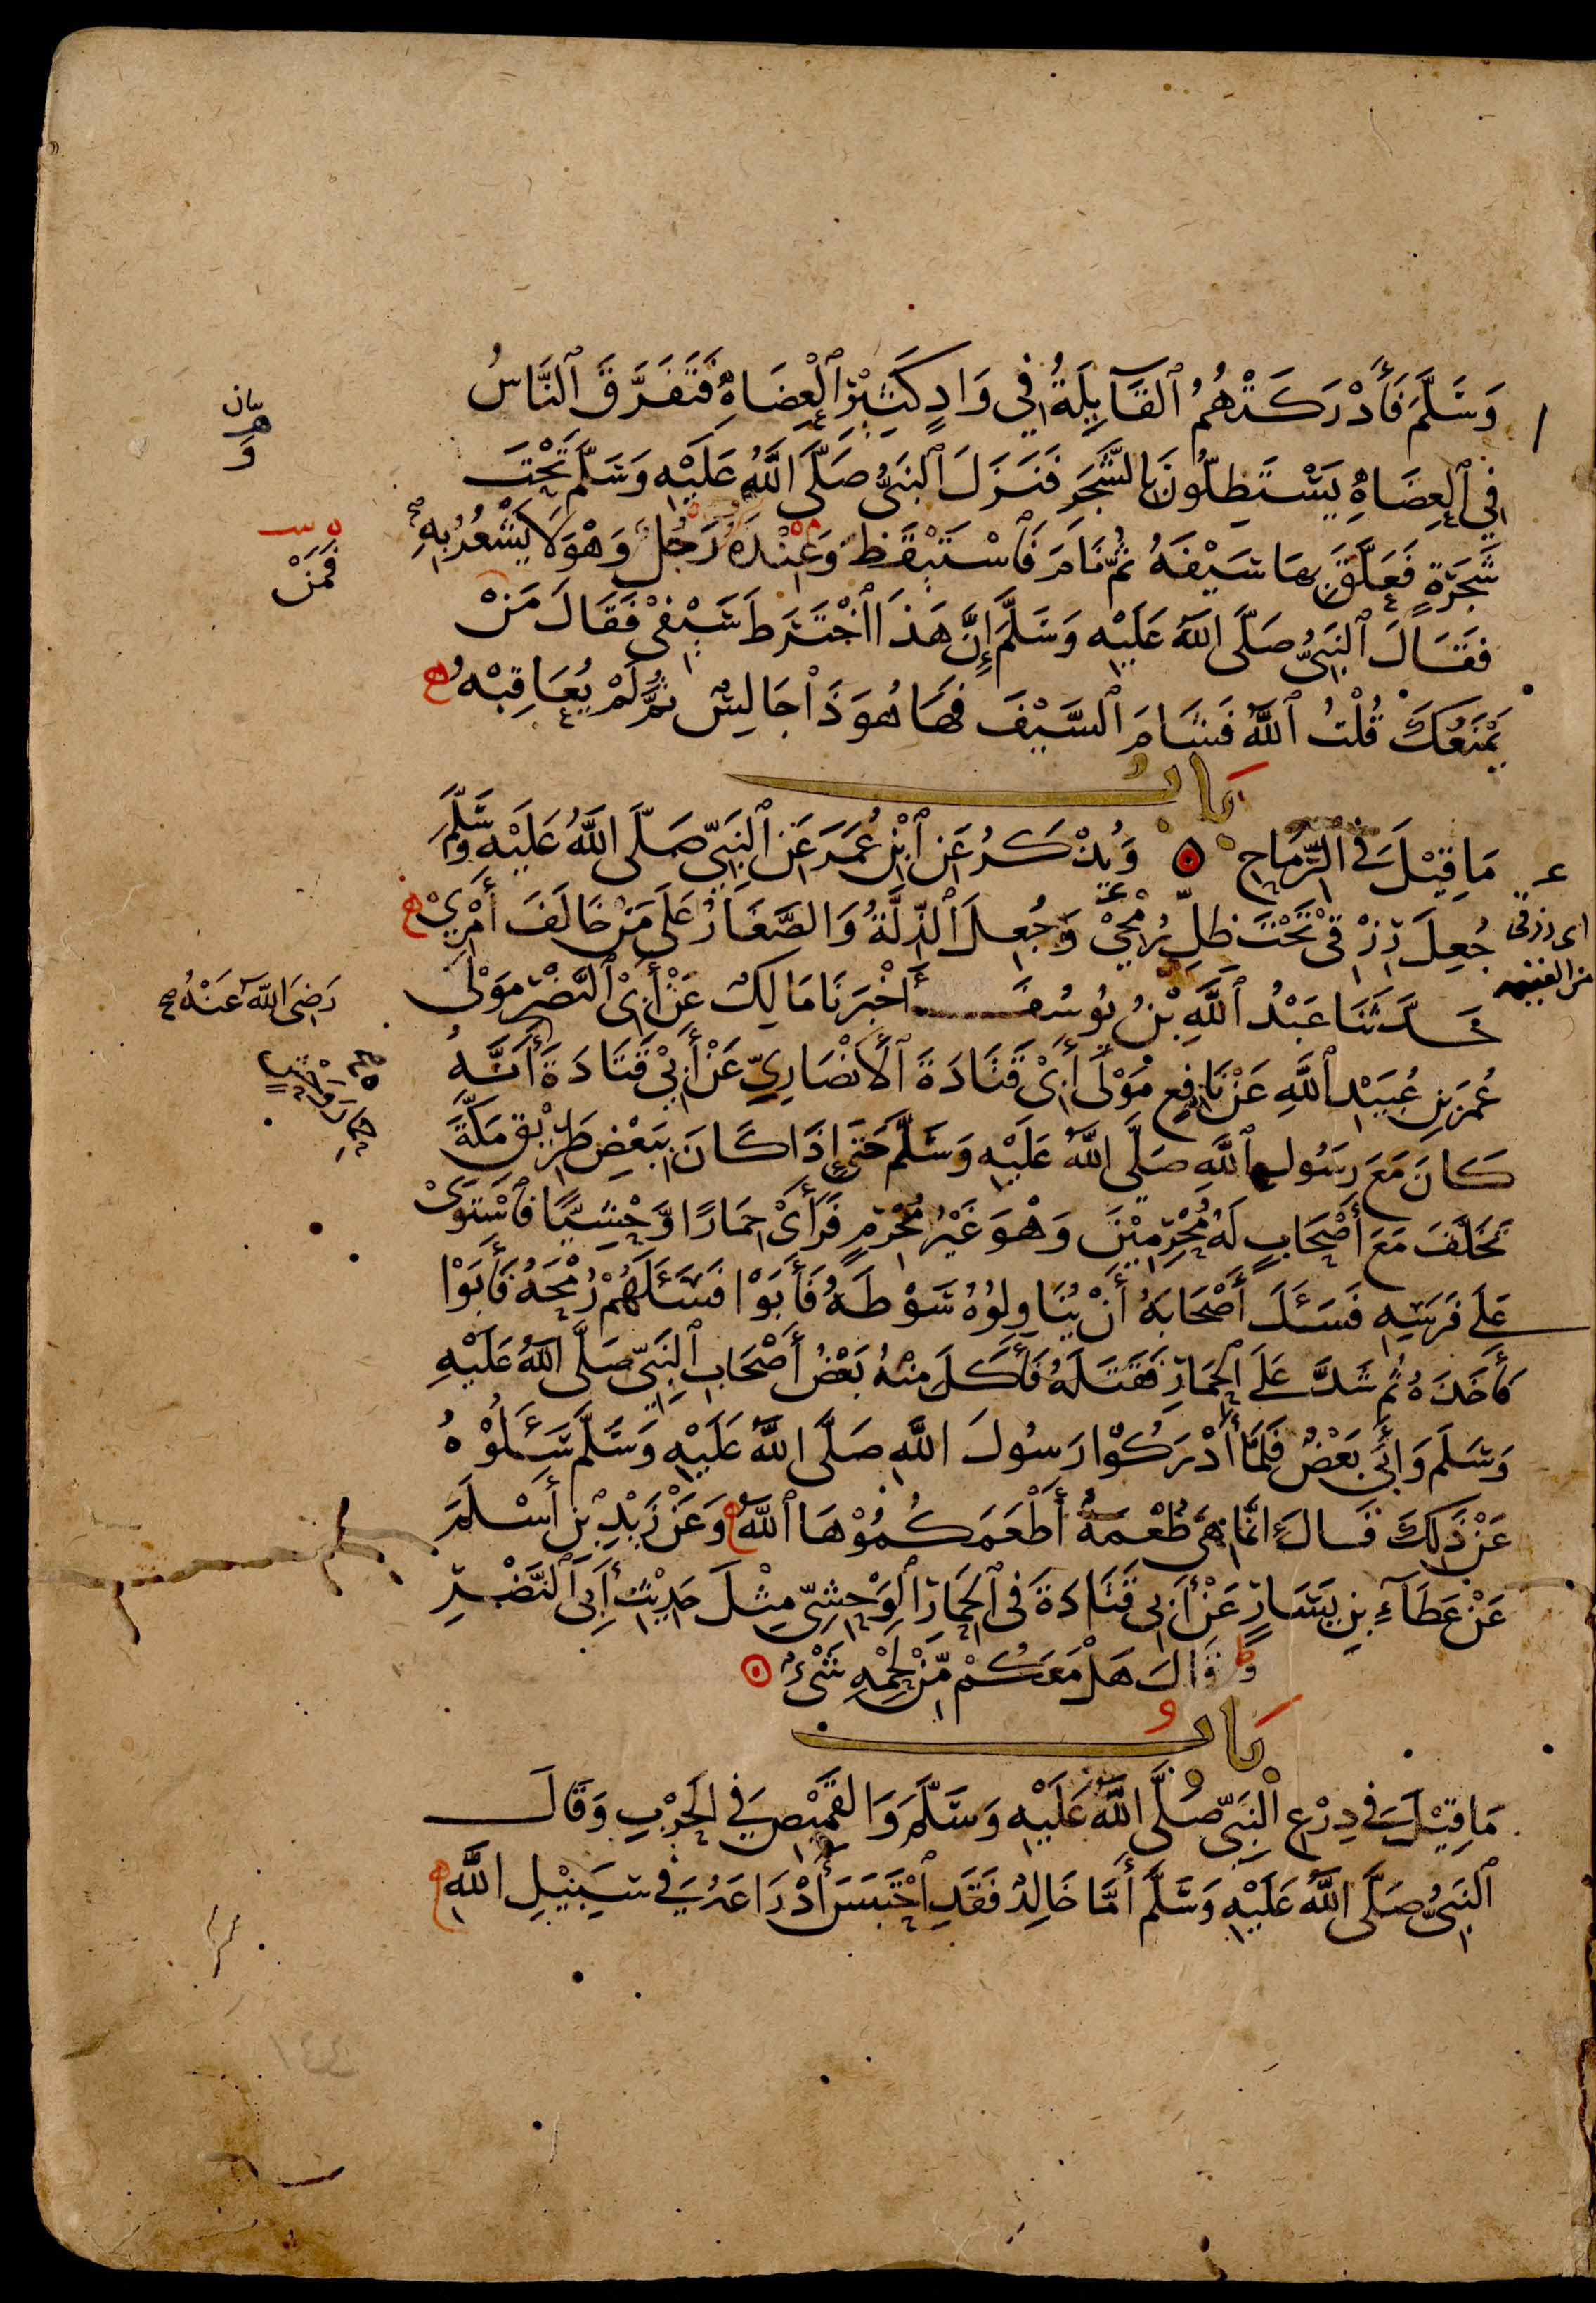 وَسَلَّمَ فَأَدْرَكَتْهُمُ ٱلْقَآيِلَةُ فِي وَادٍ كَثِيْرِ ٱلْعِضَاهِ فَتَفَرَّقَ ٱلنَّاسُ
فِي ٱلْعِضَاهِ يَسْتَظِلُّونَ بِالشَّجَرِ فَنَزَلَ ٱلنَّبِيُّ صَلَّى اللَّهُ عَلَيْهِ وَسَلَّمَ تَحْتَ
شَجَرَةٍ فَعَلَّقَ بِهَا سَيْفَهُ ثُمَّ نَامَ فَٱسْتَيْقَظَ وَعِنْدَهُ رَجُلٌ وَهْوَ لَا يَشْعُرُ بِهِ
فَقَالَ ٱلنَّبِيُّ صَلَّى اللَّهُ عَلَيْهِ وَسَلَّمَ إِنَّ هَذَا ٱخْتَرَطَ سَيْفِيْ فَقَالَ مَنْ
يَمْنَعُكَ قُلْتُ ٱللَّهُ فَشَامَ ٱلسَّيْفَ فَهَا هُوَ ذَا جَالِسٌ ثُمَّ لَمْ يُعَاقِبْهُ
بَابُ
مَا قِيْلَ فِي الرِّمَاحِ وَيُذْكَرُ عَنِ ٱبْنِ عُمَرَ عَنِ ٱلنَّبِيِّ صَلَّى اللَّهُ عَلَيْهِ وَسَلَّمَ
جُعِلَ رِزْقِي تَحْتَ ظِلِّ رُمْحِيْ وَجُعِلَ ٱلذِّلَّةُ وَالصَّغَارُ عَلَى مَنْ خَالَفَ أَمْرِيْ
حَدَّثَنَا عَبْدُ ٱللَّهِ بْنُ يُوسُفَ أَخْبَرَنَا مَالِكٌ عَنْ أَبِيْ ٱلنَّضْرِ مَوْلَى
عُمَرَ بْنِ عُبَيْدِ ٱللَّهِ عَنْ نَافِعٍ مَوْلَى أَبِيْ قَتَادَةَ ٱلْأَنْصَارِيِّ عَنْ أَبِيْ قَتَادَةَ أَنَّهُ
كَانَ مَعَ رَسُولِ ٱللَّهِ صَلَّى اللَّهُ عَلَيْهِ وَسَلَّمَ حَتَّى إِذَا كَانَ بِبَعْضِ طَرِيْقِ مَكَّةَ
تَخَلَّفَ مَعَ أَصْحَابٍ لَهُ مُحْرِمِيْنَ وَهْوَ غَيْرُ مُحْرِمٍ فَرَأَىْ حِمَارًا وَّحْشِيًّا فَٱسْتَوَىْ
عَلَى فَرَسِهِ فَسَئَلَ أَصْحَابَهُ أَنْ يُنَاوِلُوْهُ سَوْطَهُ فَأَبَوْا فَسَئَلَهُمْ رُمْحَهُ فَأَبَوْا
فَأَخَذَهُ ثُمَّ شَدَّ عَلَى الْحِمَارِ فَقَتَلَهُ فَأَكَلَ مِنْهُ بَعْضُ أَصْحَابِ ٱلنَّبِيِّ صَلَّى اللَّهُ عَلَيْهِ
وَسَلَّمَ وَأَبَى بَعْضٌ فَلَمَّا أَدْرَكُوْا رَسُولَ اللَّهِ صَلَّى اللَّهُ عَلَيْهِ وَسَلَّمَ سَئَلُوْهُ
عَنْ ذَلِكَ قَالَ إِنَّمَا هِيَ طُعْمَةٌ أَطْعَمَكُمُوْهَا ٱللَّهُ وَعَنْ زَيْدِ بْنِ أَسْلَمَ
عَنْ عَطَآءِ بْنِ يَسَارٍ عَنْ أَبِي قَتَادَةَ فِي ٱلْحِمَارِ ٱلْوَحْشِيِّ مِثْلَ حَدِيْثِ أَبِي ٱلنَّضْرِ
وَقَالَ هَلْ مَعَكُمْ مِّنْ لَحْمِهِ شَيْءٌ
بَابُ
مَا قِيْلَ فِي دِرْعِ ٱلنَّبِيِّ صَلَّى اللَّهُ عَلَيْهِ وَسَلَّمَ وَالْقَمِيْصِ فِي الْحَرْبِ وَقَالَ
ٱلنَّبِيُّ صَلَّى اللَّهُ عَلَيْهِ وَسَلَّمَ أَمَّا خَالِدٌ فَقَدِ ٱحْتَبَسَ أَدْرَاعَهُ فِي سَبِيْلِ اللَّهِ
فَمَنْ
رَضِيَ اللَّهُ عَنْهُ
اى رزقى
من الغنيمه